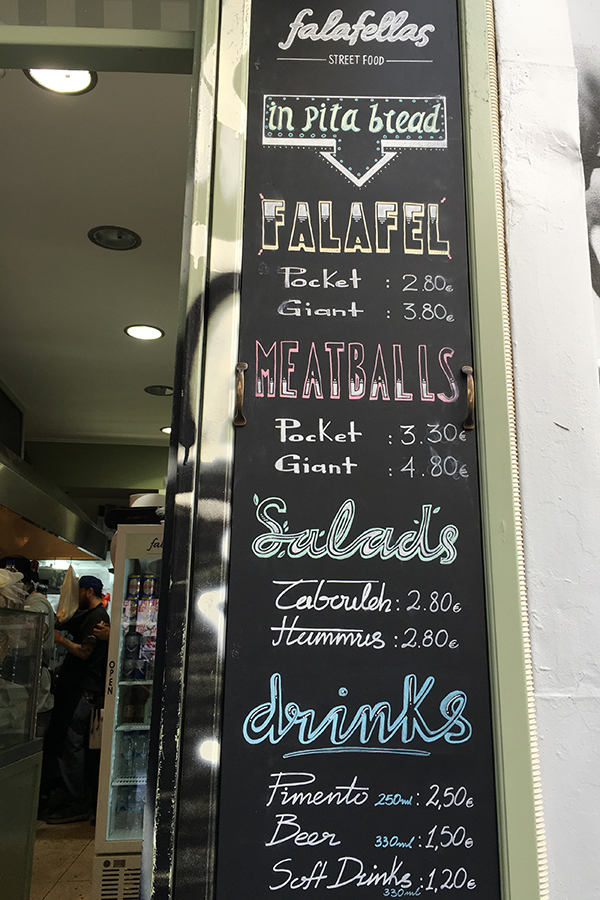 falafellas
STREET FOOD
in pita bread
FALAFEL
Pocket : 2.80€
Giant : 3.80€
MEATBALLS
Pocket : 3.30€
Giant : 4.80€
Salads
Tabouleh : 2.80€
Hummus : 2.80€
drinks
Pimento 250ml : 2,50€
Beer 330ml : 1,50€
Soft Drinks 330ml : 1,20€
OPEN